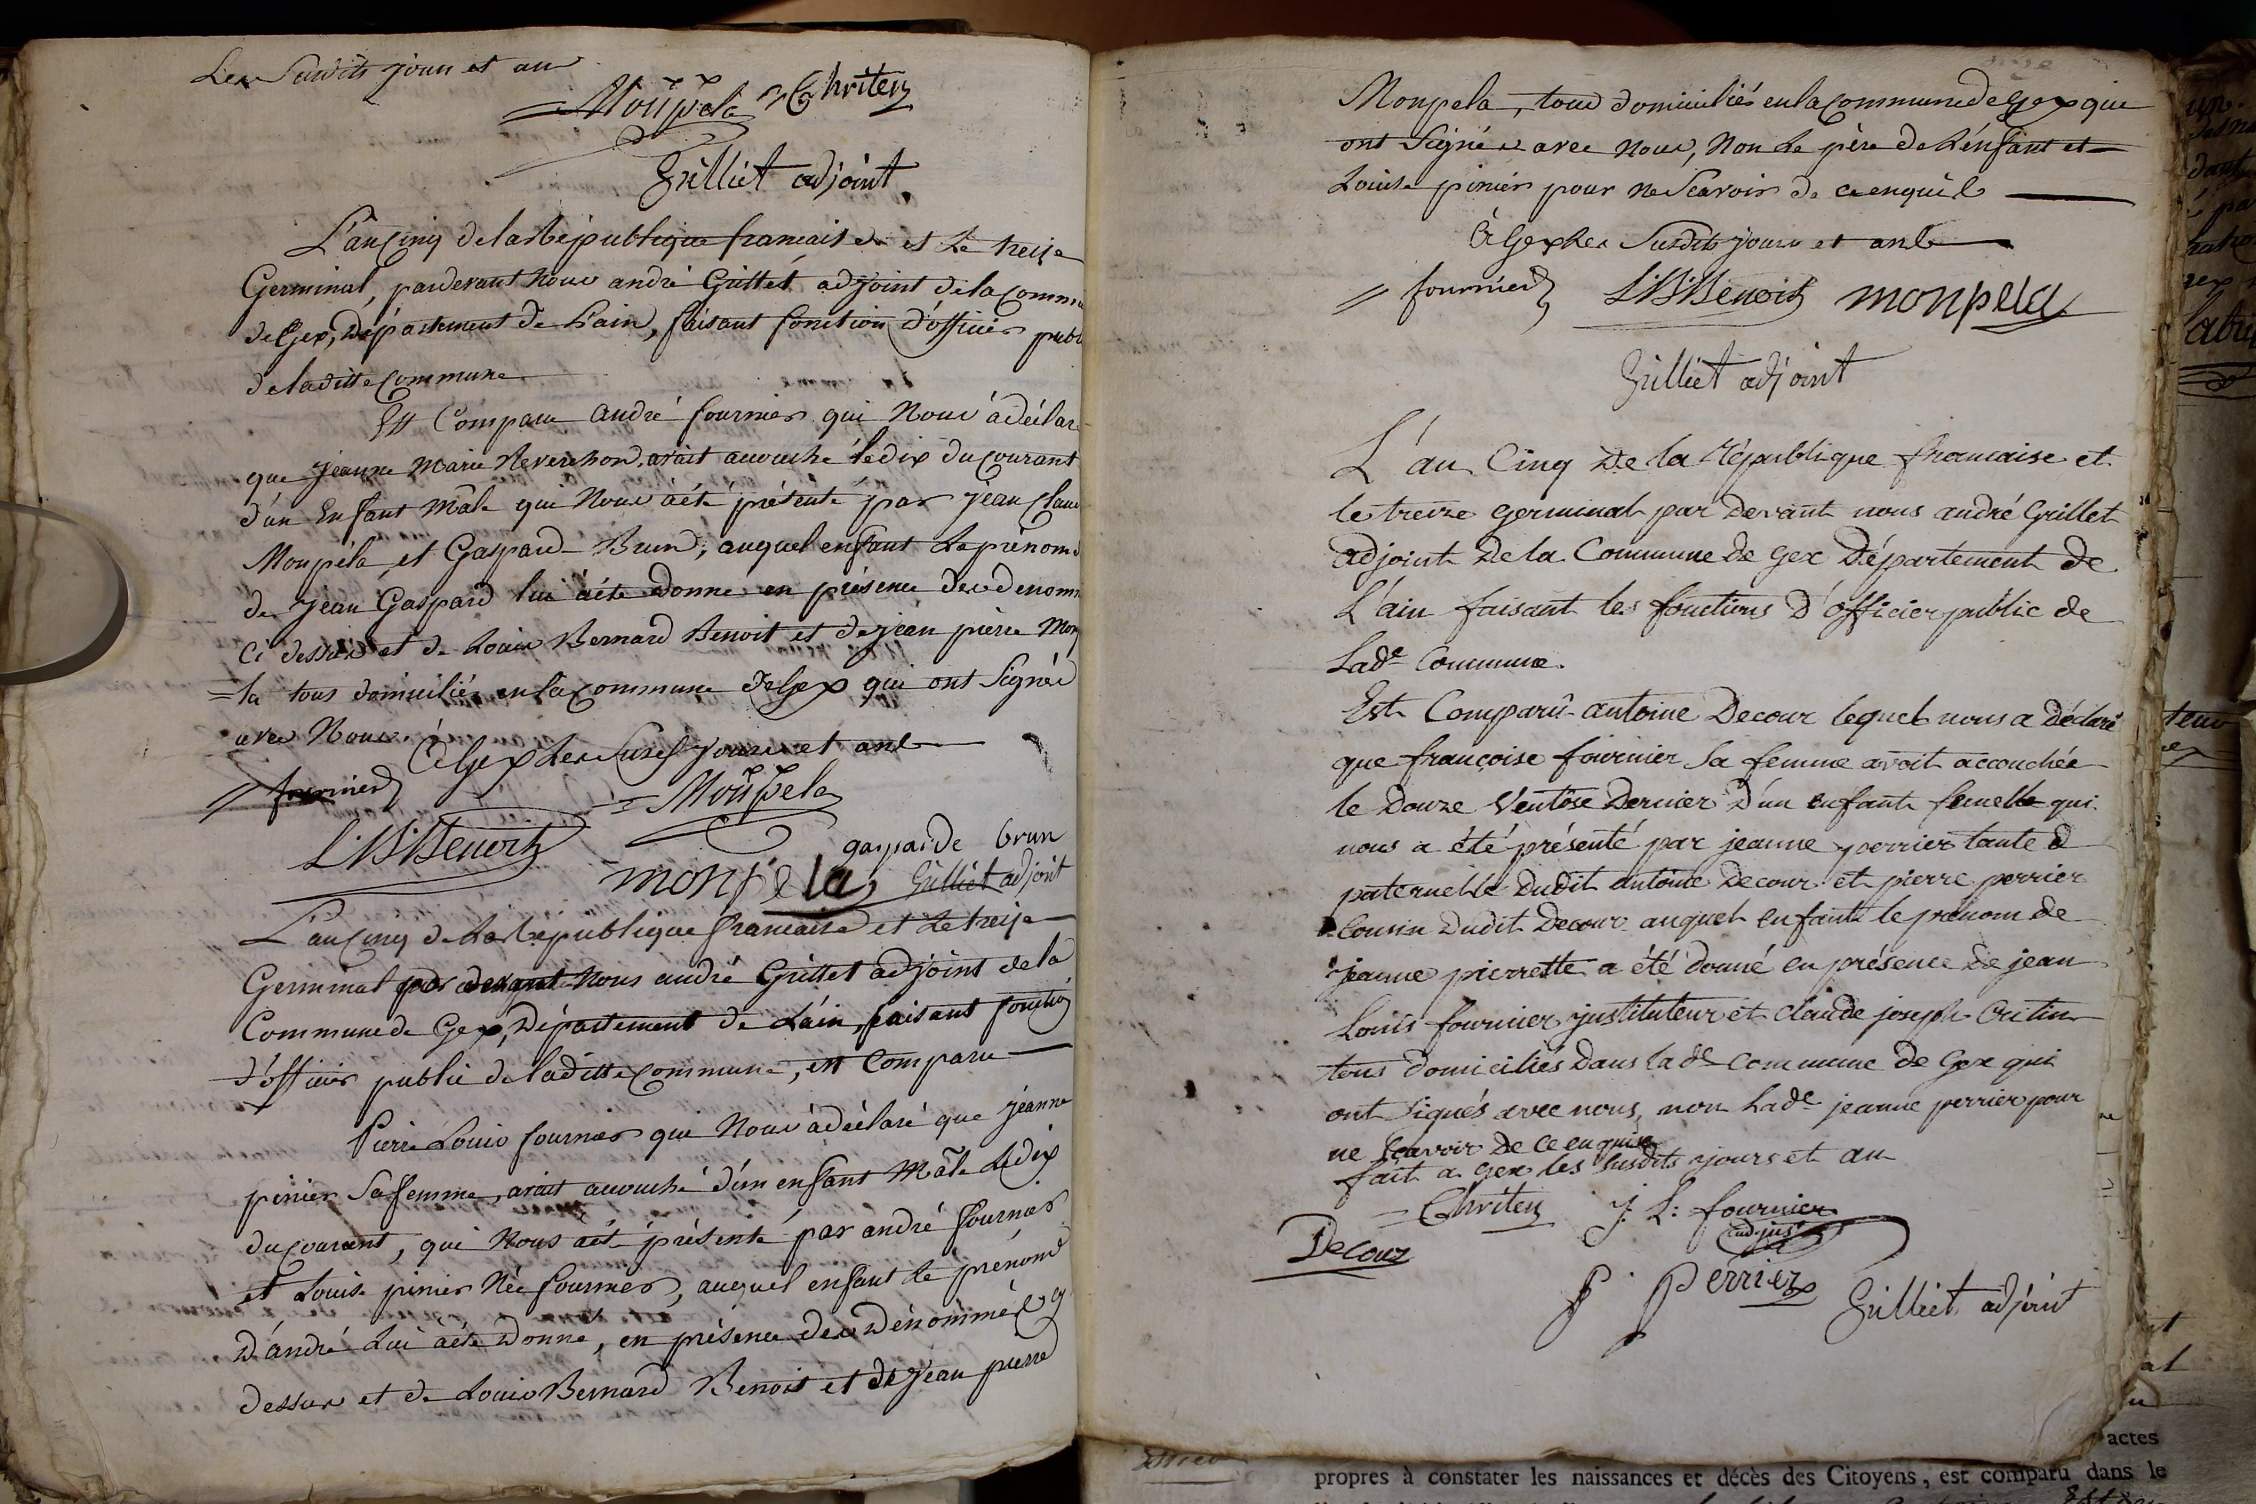 Les Susdits jour et an
Moupela Chriten
Grilliet adjoint
L'an Cinq de la République francaise et le treize
Germinal, pardevant Nous andré Grillet adjoint de la Commu
de Gex, Département de L'ain, faisant fonction d'officier publ
de laditte Commune
Est Comparu andré fournier qui Nous à déclar
que jeanne Marie Reverchon, avait accouché le dix du Courant
d'un Enfant Mâle qui Nous àété présenté par jean Clau
Monpéla et Gaspard Brun, auquel enfant le prénom
de jean Gaspard lui àété donné en présence des denom
Ci dessus et de Louis Bernard Benoit et de jean pierre Mon
=la tous domiciliés en la Commune de Gex qui ont Signés
avec Nous.
à Gex les Susd. jours et an
fournier
Moupela
L.B. Benoit
gasparde brun
monpela Grilliet adjoint
L'an Cinq de la République francaise et le treize
Germinal par devant Nous andré Grillet adjoint de la
Commune de Gex, Département de L'ain, faisant fonction
d'officier public de laditte Commune, est Comparu
Pierre Louis fournier qui Nous à déclaré que jeanne
pinier Sa femme, avait accouché d'un enfant Mâle le dix
du Courant, qui Nous àété présenté par andré fournier
et Louise pinier Née fournier, auquel enfant le prénom
d'andré Lui àété Donné, en présence des dénommés cy
dessus et de Louis Bernard Benoit et de jean pierre
Monpela, tous domiciliés en la Commune de Gex qui
ont Signés avec Nous, Non le père de L'énfant et
Louise pinier pour ne Scavoir de ce enquis
à Gex les Susdits jours et an
fournier L.B. Benoit monpela
Grilliet adjoint
L'an Cinq de la République francaise et
le treize germinal par devant nous andré Grillet
adjoint de la Commune de Gex Département de
L'ain faisant les fonctions D'officier public de
Lade Commune.
Est Comparû antoine Decour lequel nous a Déclaré
que françoise fournier Sa femme avoit accouchée
le Douze Ventôse Dernier D'un enfant femelle qui
nous a été présenté par jeanne perrier tante
paternelle dudit antoine Decour et pierre perrier
Cousin Dudit Decour auquel enfant le prenom de
jeanne pierrette a été donné en présence de jean
Louis fournier jnstituteur et claude joseph Critin
tous domiciliés Dans la de commune de Gex qui
ont signés avec nous, non Lade jeanne perrier pour
ne Scavoir de ce enquise
fait a gex les susdits jours et an
Chriten J. L: fournier
Decour
P. Perrier Grilliet adjoint
actes
propres à constater les naissances et décès des Citoyens, est comparu dans le